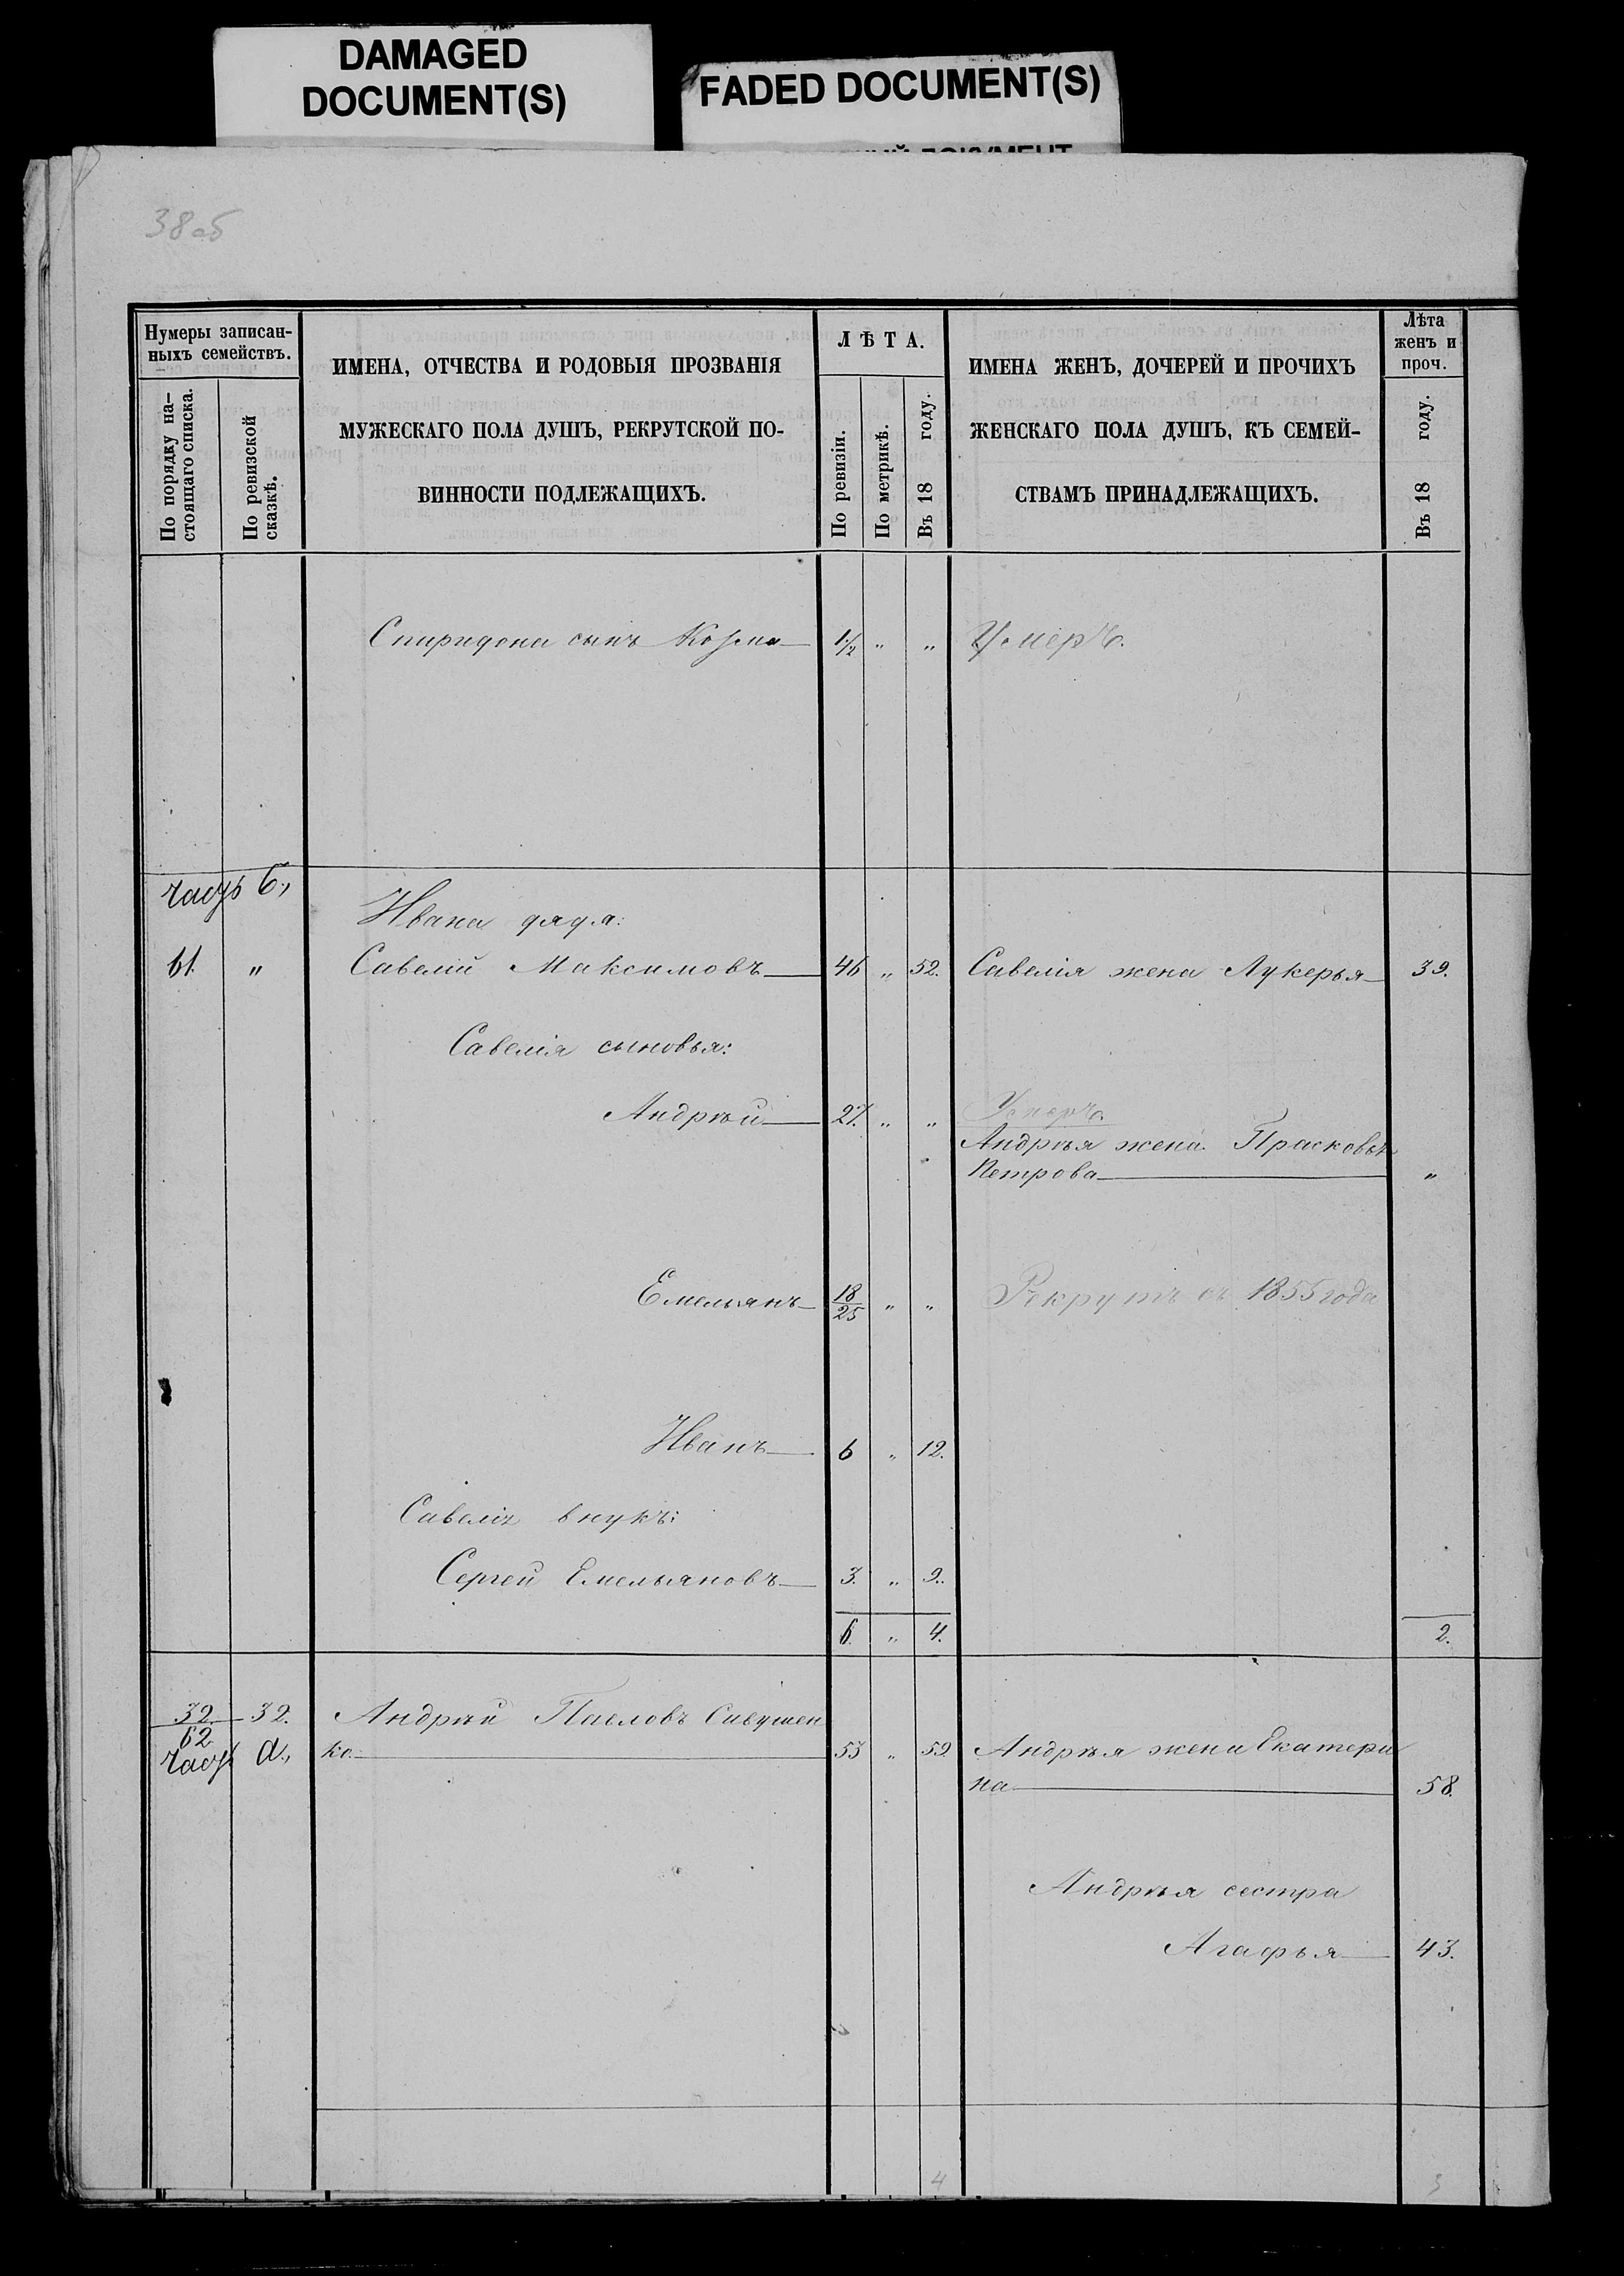 DAMAGED
DOCUMENT(S)
FADED DOCUMENT(S)
38об
Нумеры записан-
ныхъ семействъ.
По порядку на-
стоящаго списка.
По ревизской
сказкѣ.
ИМЕНА, ОТЧЕСТВА И РОДОВЫЯ ПРОЗВАНІЯ
МУЖЕСКАГО ПОЛА ДУШЪ, РЕКРУТСКОЙ ПО-
ВИННОСТИ ПОДЛЕЖАЩИХЪ.
ЛѢТА.
По ревизіи.
По метрикѣ.
Въ 18 году.
ИМЕНА ЖЕНЪ, ДОЧЕРЕЙ И ПРОЧИХЪ
ЖЕНСКАГО ПОЛА ДУШЪ, КЪ СЕМЕЙ-
СТВАМЪ ПРИНАДЛЕЖАЩИХЪ.
Лѣта
женъ и
проч.
Въ 18 году.
Спиридона сынъ Козма 1/2 " " Умеръ.
часть б.,
Ивана дядя:
61. " Савелій Максимовъ 46 " 52. Савелія жена Лукерья 39.
Савелія сыновья:
Андрѣй 27. " " Умеръ.
Андрѣя жена Прасковья
Петрова "
Емельянъ 18/25 " " Рекрутъ съ 1855 года
Иванъ 6 " 12.
Савелія внукъ:
Сергей Емельяновъ 3. " 9.
6. " 4. 2.
32. 32. Андрѣй Павловъ Сивушен
62
часть а., ко 53 " 59. Андрѣя жена Екатери
на 58.
Андрѣя сестра
Агафья 43.
4 3